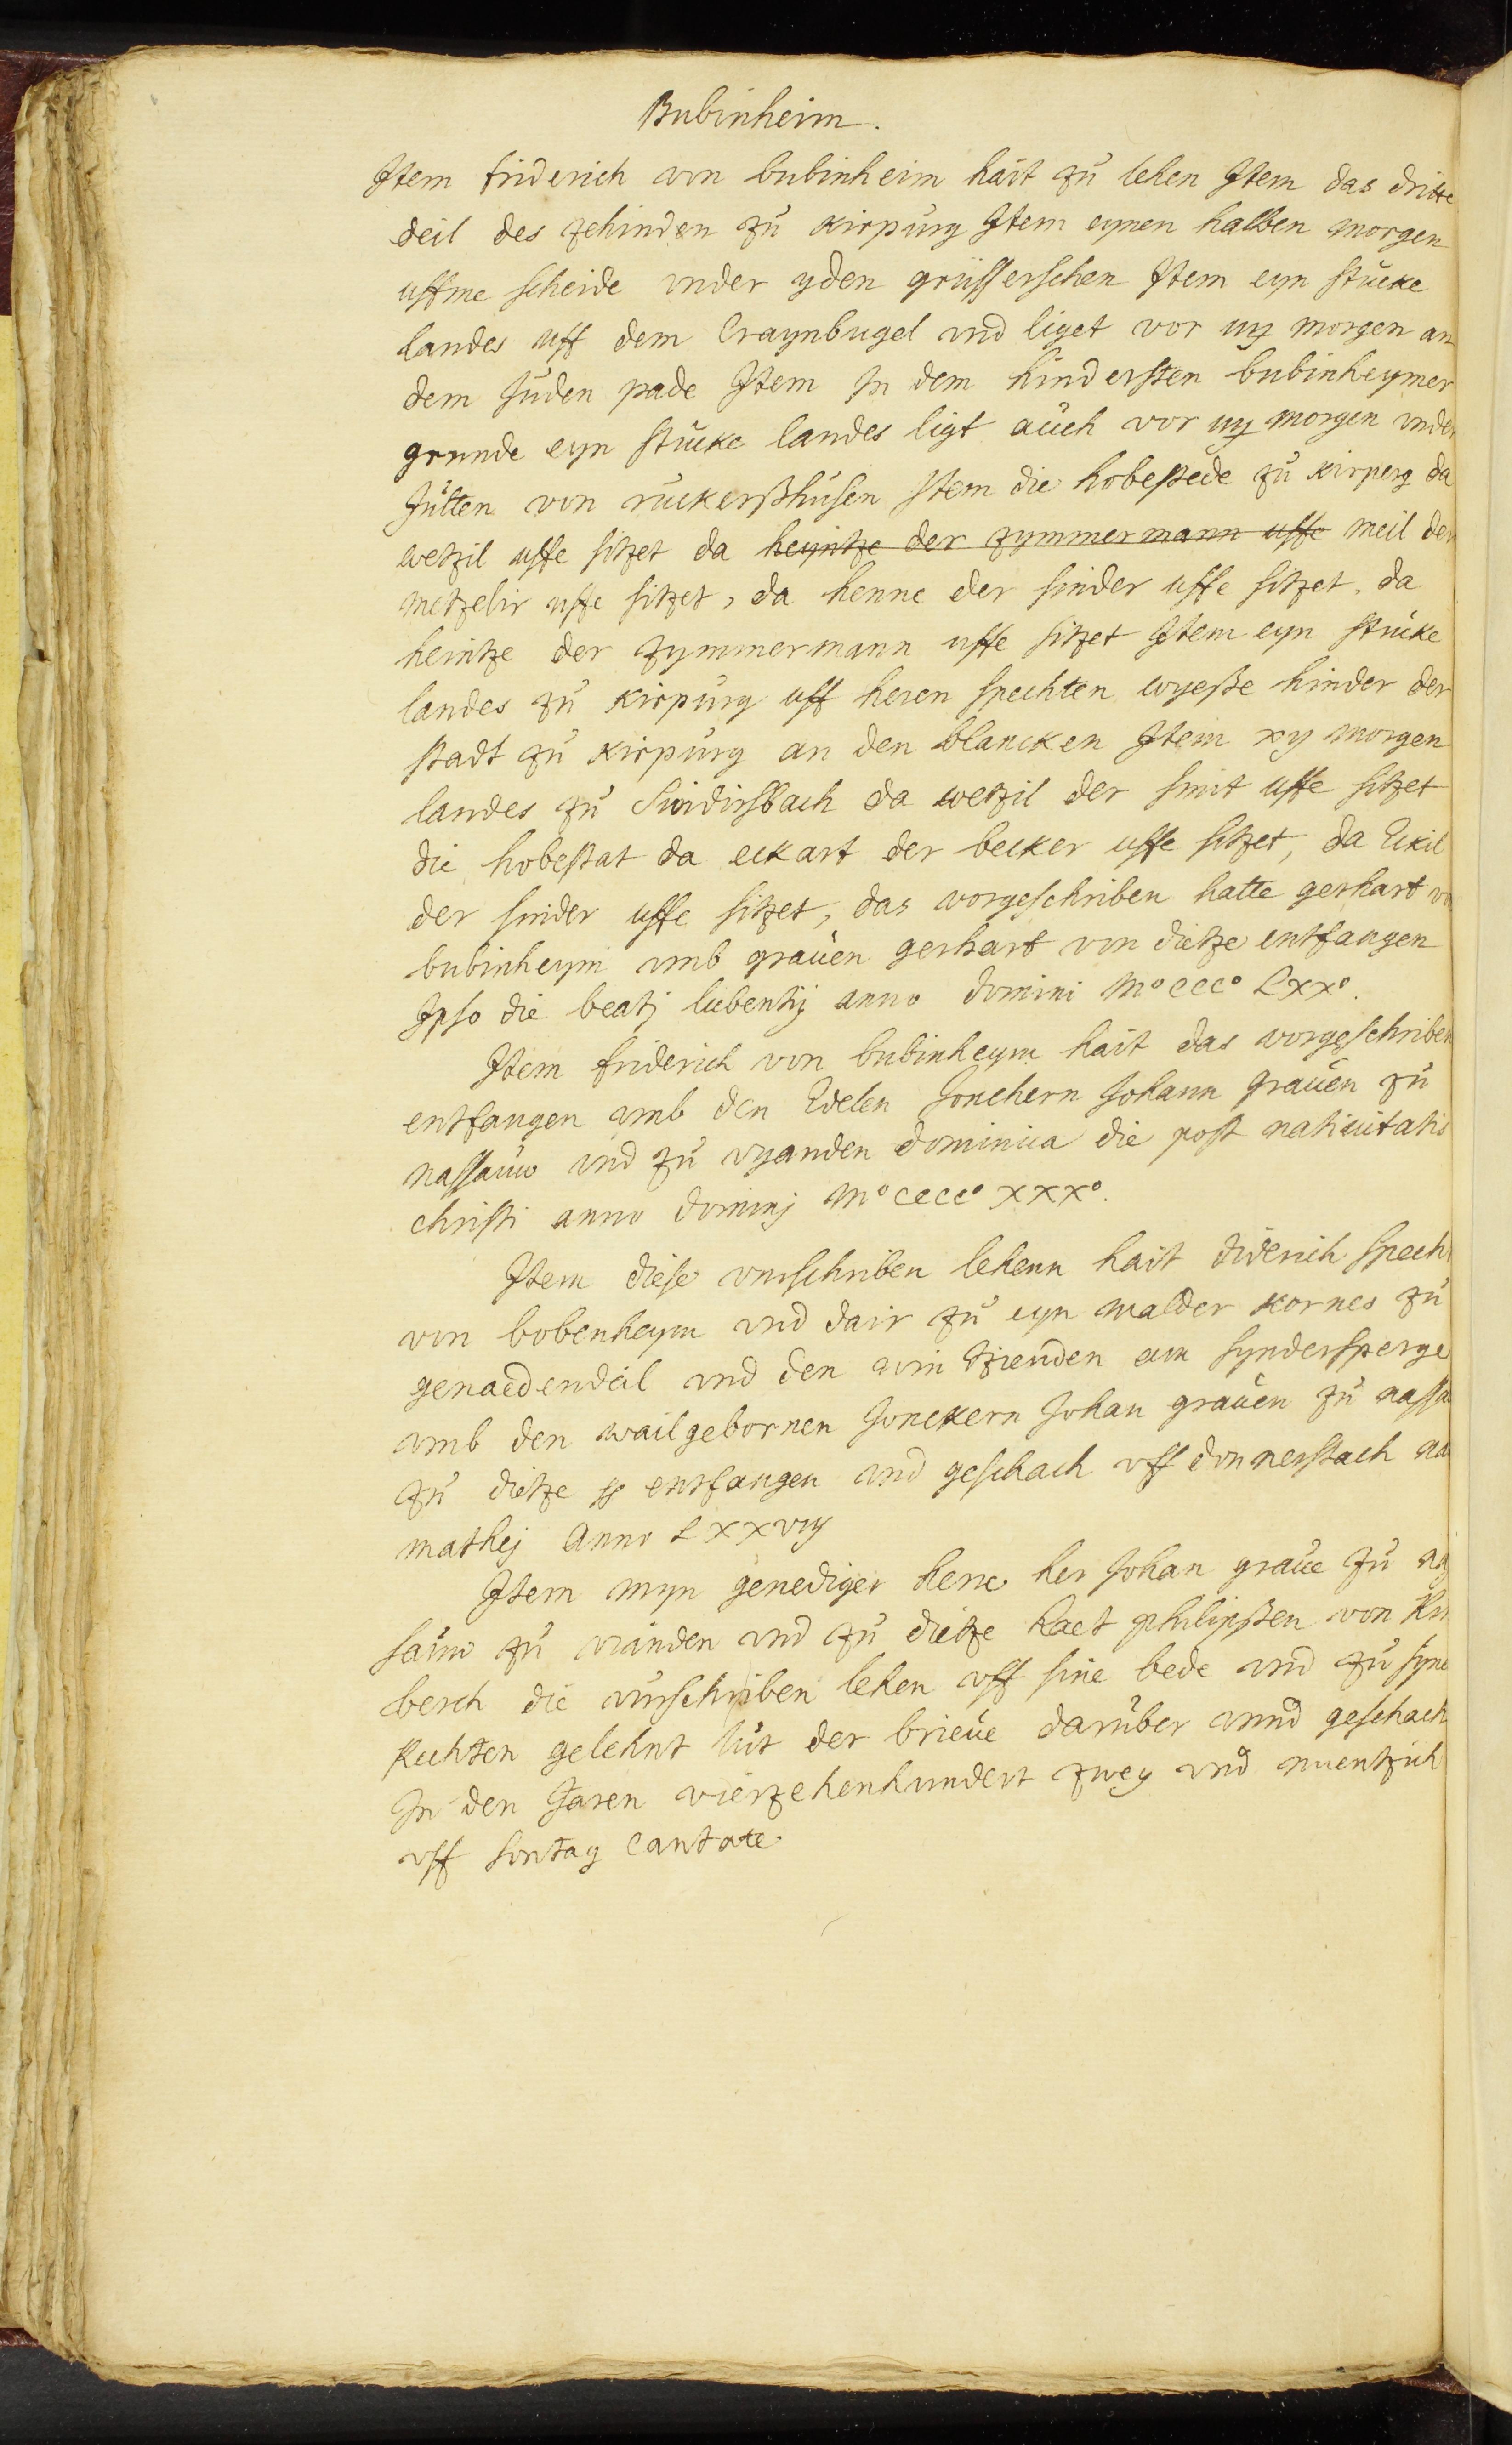 Bubinheim.
Item friderich von bubinheim hait zu lehen Item das dritte
deil des zehinden zu kirpurg Item eynen halben morgen
uffme scheide vnder yden grüsserschen Item eyn stucke
landes uff dem Craynbugel vnd liget vor iiij morgen an
dem Juden pade Item In dem hindersten bubinheymer
grunde eyn stucke landes ligt auch vor iiij morgen vnder
Jutten von ruckerßhusen Item die hobestede zu kirperg da
wetzil uffe sitzet da heyntze der zymmermann uffe meil der
metzelir uffe sitzet, da henne der sinder uffe sitzet, da
heintze der zymmermann uffe sitzet Item eyn stucke
landes zu kirpurg uff heren spechten wyeße hinder der
stadt zu kirpurg an den blancken Item xij morgen
landes zu Suidirsbach da wetzil der smit uffe sitzet
die hobestat da eckart der becker uffe sitzet, da Eckil
der sinder uffe sitzet, das vorgeschriben hatte gerhart vo
bubinheym vmb grauen gerhart von dietze entfangen
Ipso die beatj lubentij anno domini Mº cccº Lxxº.
Item friderich von bubinheym hait das vorgeschriben
entfangen vmb den Edelen Jonchern Johann grauen zu
nassauw vnd zu vyanden dominica die post natiuitatis
christi anno dominj Mº ccccº xxxº.
Item diese vurschriben lehenn hait diderich Spech
von bobenheym vnd dair zu eyn malder kornes zu
genaedendeil vnd den win tzienden am syndersperge
vmb den wailgebornen Jonckern Johan grauen zu nassa
zu dietze entfangen vnd geschach vff donnerstach na
mathej Anno Lxxviij
Item myn genediger herre her Johan graue zu na
sauw zu vianden vnd zu dietze haet philipßen von
berch die vurschriben lehen vff sine bede vnd zu syne
Rechten gelehnt lut der brieue daruber vnnd geschach
In den Jaren vierzehenhundert zwey vnd nuentzich
vff sontag Cantate